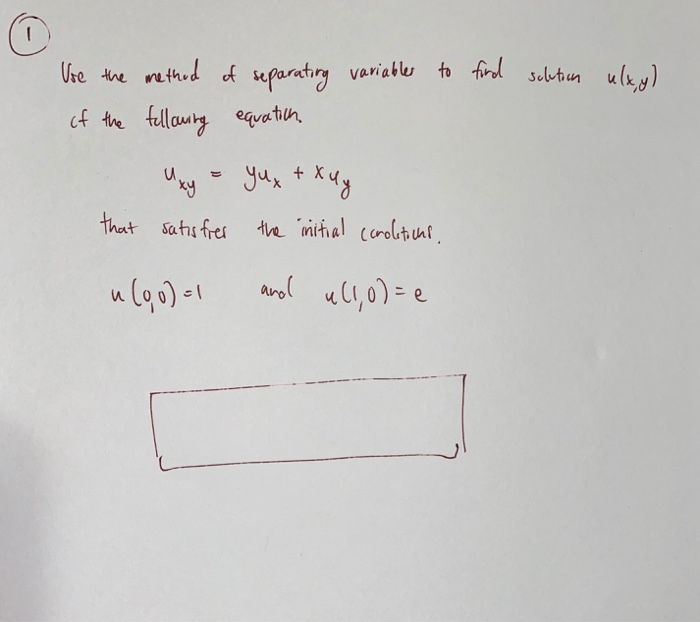 1
Use the method of separating variables to find solution u(x,y)
of the following equation.
u_xy = yu_x + xu_y
that satisfies the initial conditions.
u(0,0)=1 and u(1,0)=e